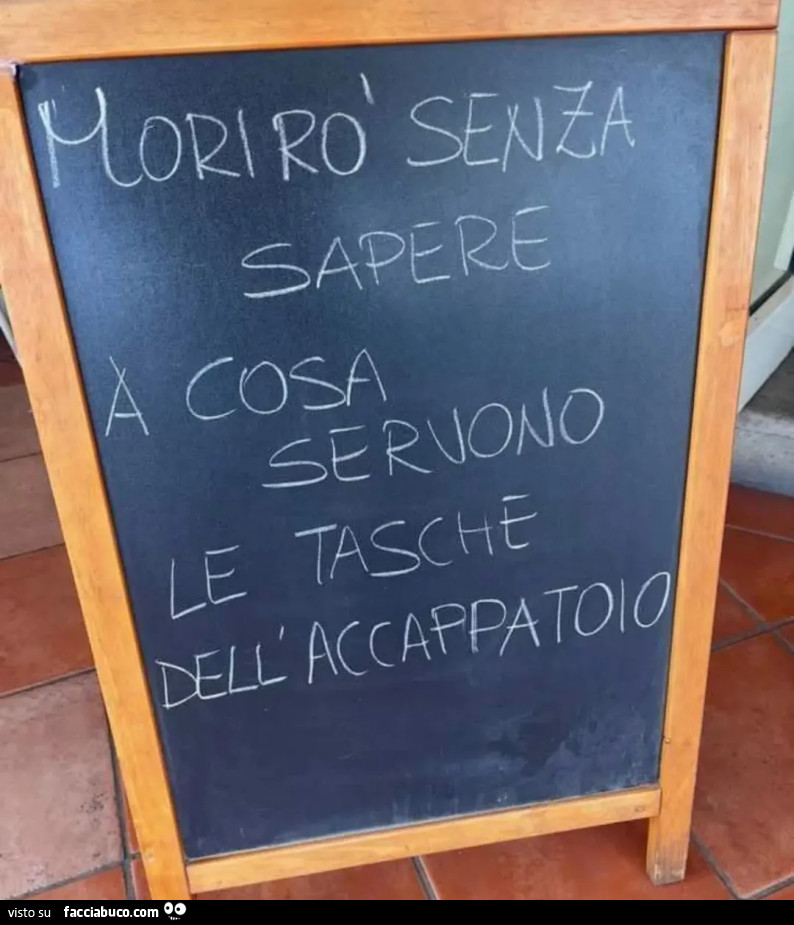 MORIRO' SENZA
SAPERE
A COSA
SERVONO
LE TASCHE
DELL'ACCAPPATOIO
visto su facciabuco.com